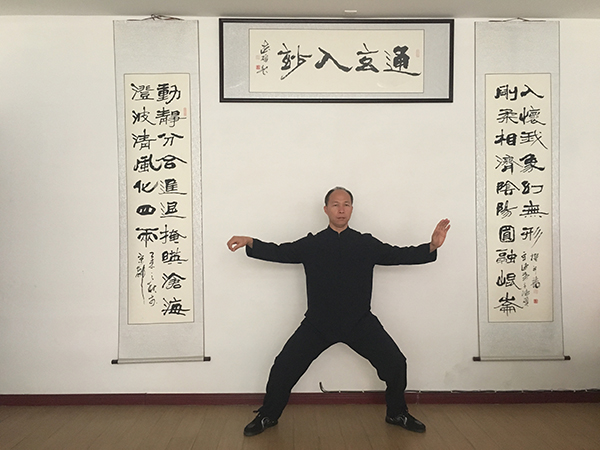 通玄入妙
剛柔相濟陰陽圓融崐崙
入懷我象幻無形
動靜分合進退掩暎滄海
澄波清風化四兩